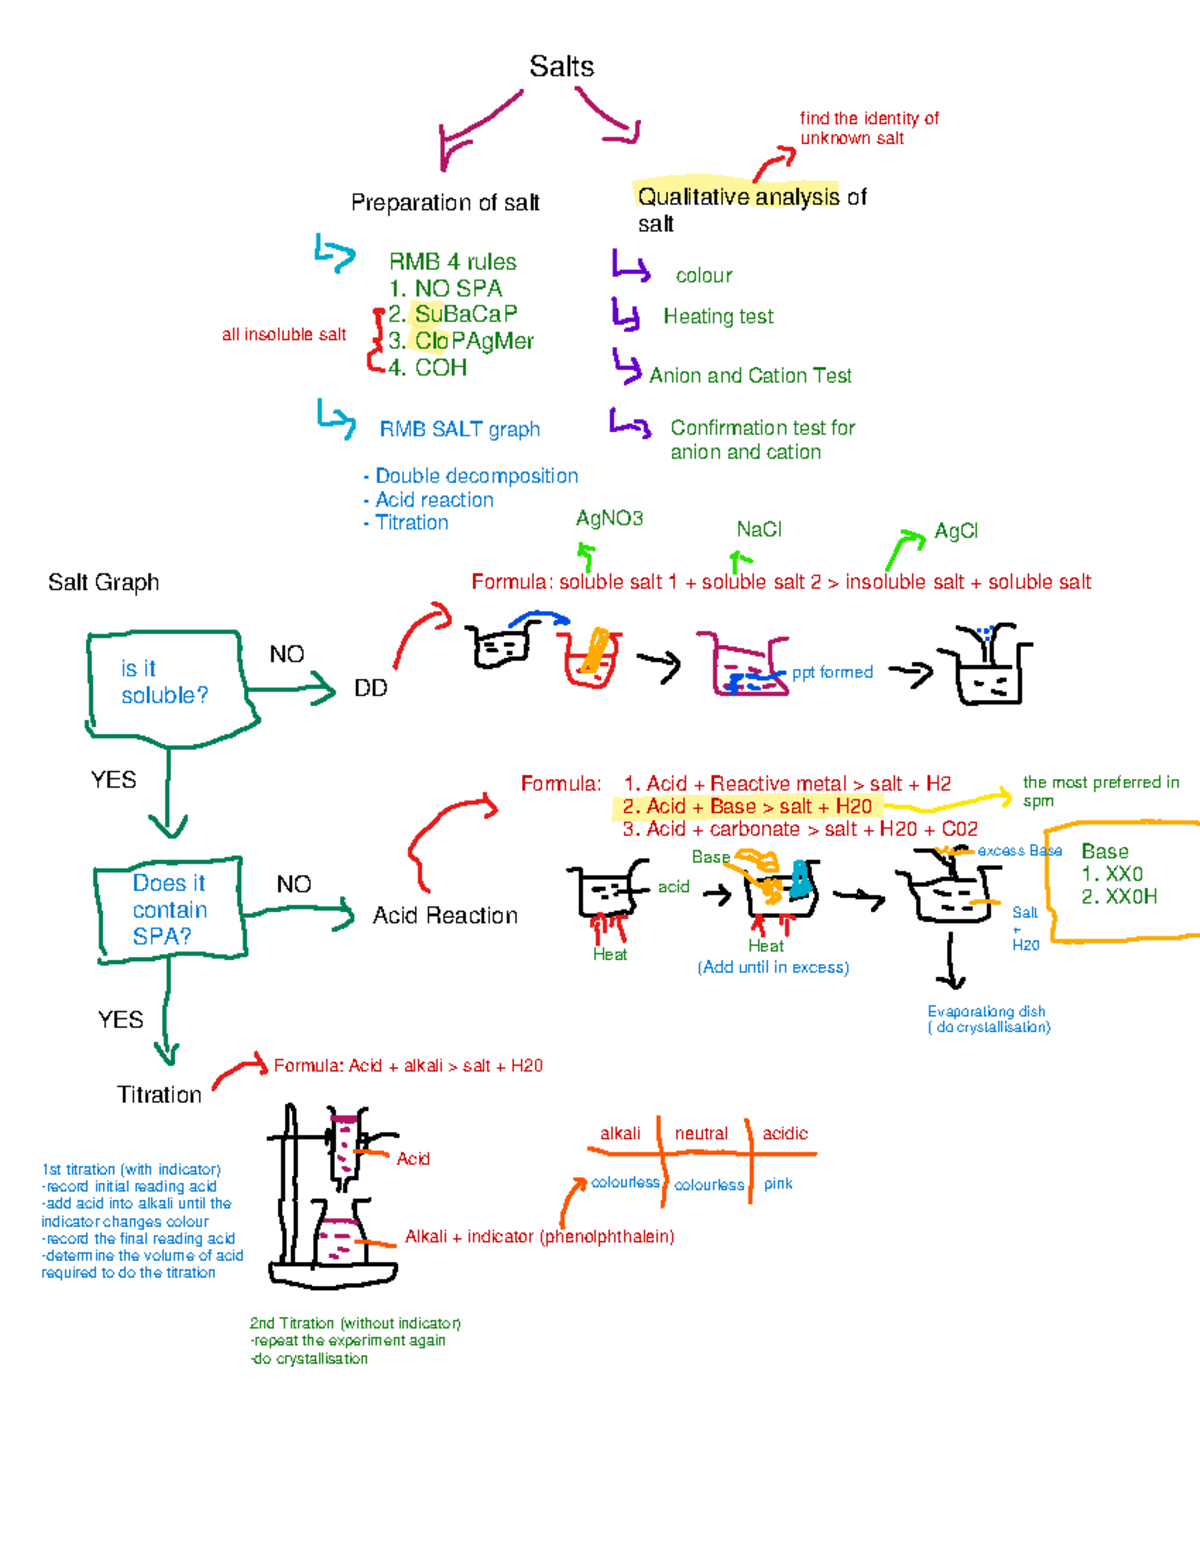 Salts
find the identity of
unknown salt
Preparation of salt
Qualitative analysis of
salt
RMB 4 rules
1. NO SPA
2. SuBaCaP
3. CloPAgMer
4. COH
all insoluble salt
colour
Heating test
Anion and Cation Test
Confirmation test for
anion and cation
RMB SALT graph
- Double decomposition
- Acid reaction
- Titration
AgNO3
NaCl
AgCl
Salt Graph
Formula: soluble salt 1 + soluble salt 2 > insoluble salt + soluble salt
is it
soluble?
NO
DD
ppt formed
YES
Formula:
1. Acid + Reactive metal > salt + H2
2. Acid + Base > salt + H20
3. Acid + carbonate > salt + H20 + C02
the most preferred in
spm
Does it
contain
SPA?
NO
Acid Reaction
Base
acid
Heat
Heat
(Add until in excess)
excess Base
Salt
+
H20
Base
1. XX0
2. XX0H
Evaporationg dish
( do crystallisation)
YES
Titration
Formula: Acid + alkali > salt + H20
1st titration (with indicator)
-record initial reading acid
-add acid into alkali until the
indicator changes colour
-record the final reading acid
-determine the volume of acid
required to do the titration
Acid
Alkali + indicator (phenolphthalein)
alkali neutral acidic
colourless colourless pink
2nd Titration (without indicator)
-repeat the experiment again
-do crystallisation